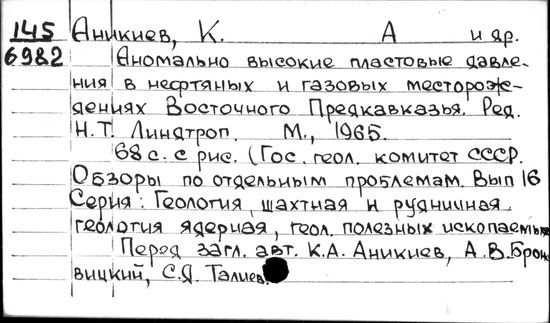 145 Аникиев, К. А и яр.
6982 Аномально высокие пластовые давле-
ния в нефтяных и газовых месторож-
дениях Восточного Предкавказья. Ред.
Н.Т. Линдтроп. М., 1965.
68 с. с рис. (Гос. геол. комитет СССР.
Обзоры по отдельным проблемам. Вып 16
Серия: Геология, шахтная и рудничная
геология ядерная, геол. полезных ископаемых
Перед загл. авт. К.А. Аникиев, А.В. Брон-
вицкий, С.Я. Талиев.